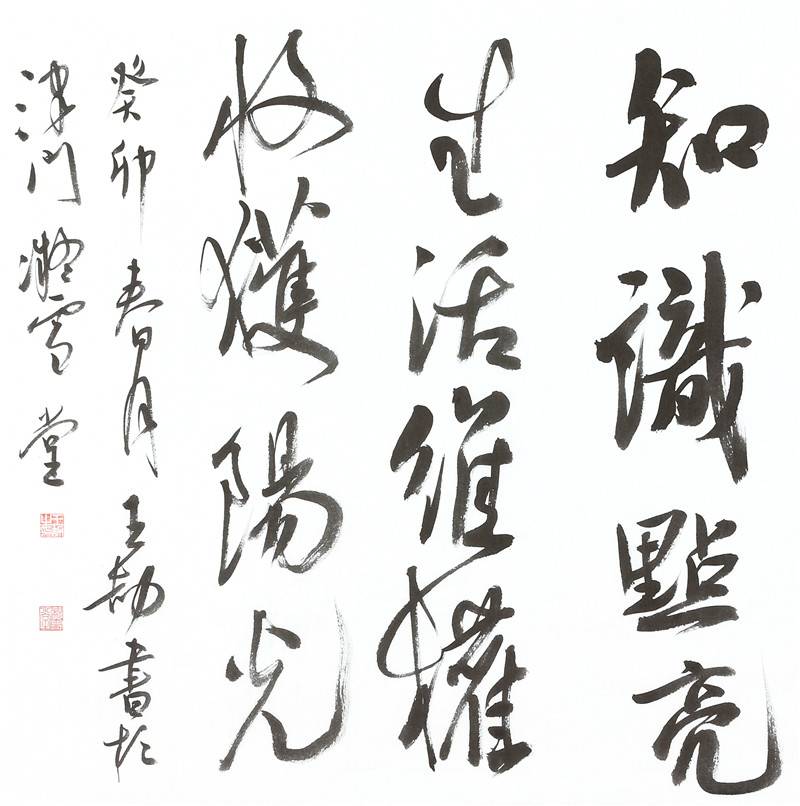 知識點亮
生活維權
收獲陽光
癸卯春月王劼書於
津門凝雪堂